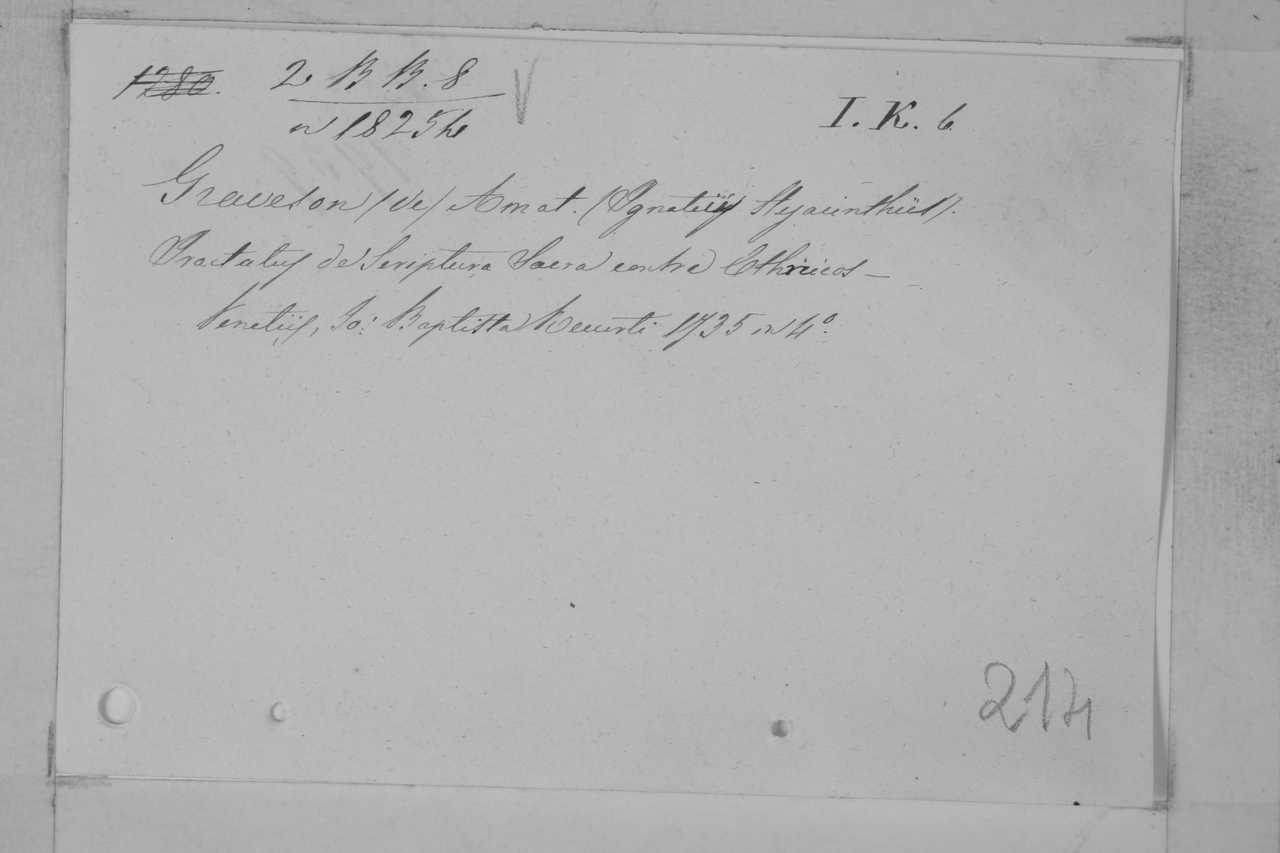 1280. 2. B B. 8 V I. K. 6
n 18254
Graveson (de) Amat. (Ignatius Hyacinthus).
Tractatus de Scriptura Sacra contra Ethnicos –
Venetiis, Jo: Baptista Recurti 1735 in 4º.
214